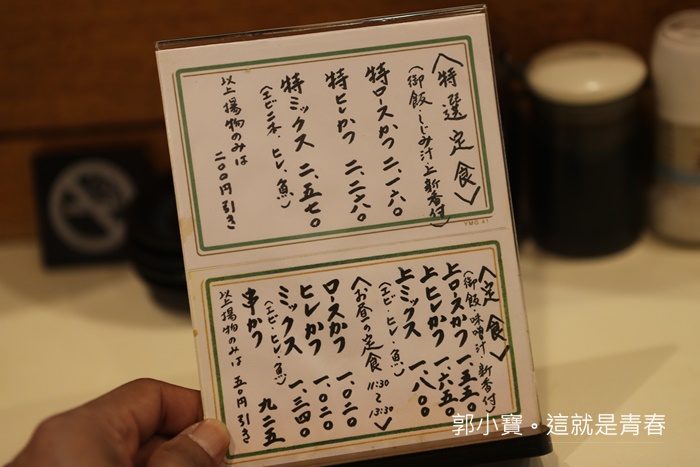 〈特選定食〉
(御飯・しじみ汁・上新香付)
特ロースかつ 二、一六〇
特ヒレかつ 二、二六〇
特ミックス 二、五七〇
(エビ二本、ヒレ、魚)
以上揚物のみは
二〇〇円引き
YMG 41
〈定食〉
(御飯・味噌汁・新香付)
上ロースかつ 一、五五〇
上ヒレかつ 一、六五〇
上ミックス 一、八〇〇
(エビ・ヒレ・魚)
〈お昼の定食 11:30〜13:30〉
ロースかつ 一、〇二〇
ヒレかつ 一、〇二〇
ミックス 一、三四〇
(エビ・ヒレ・魚)
串かつ 九二五
以上揚物のみは 五〇円引き
郭小寶。這就是青春